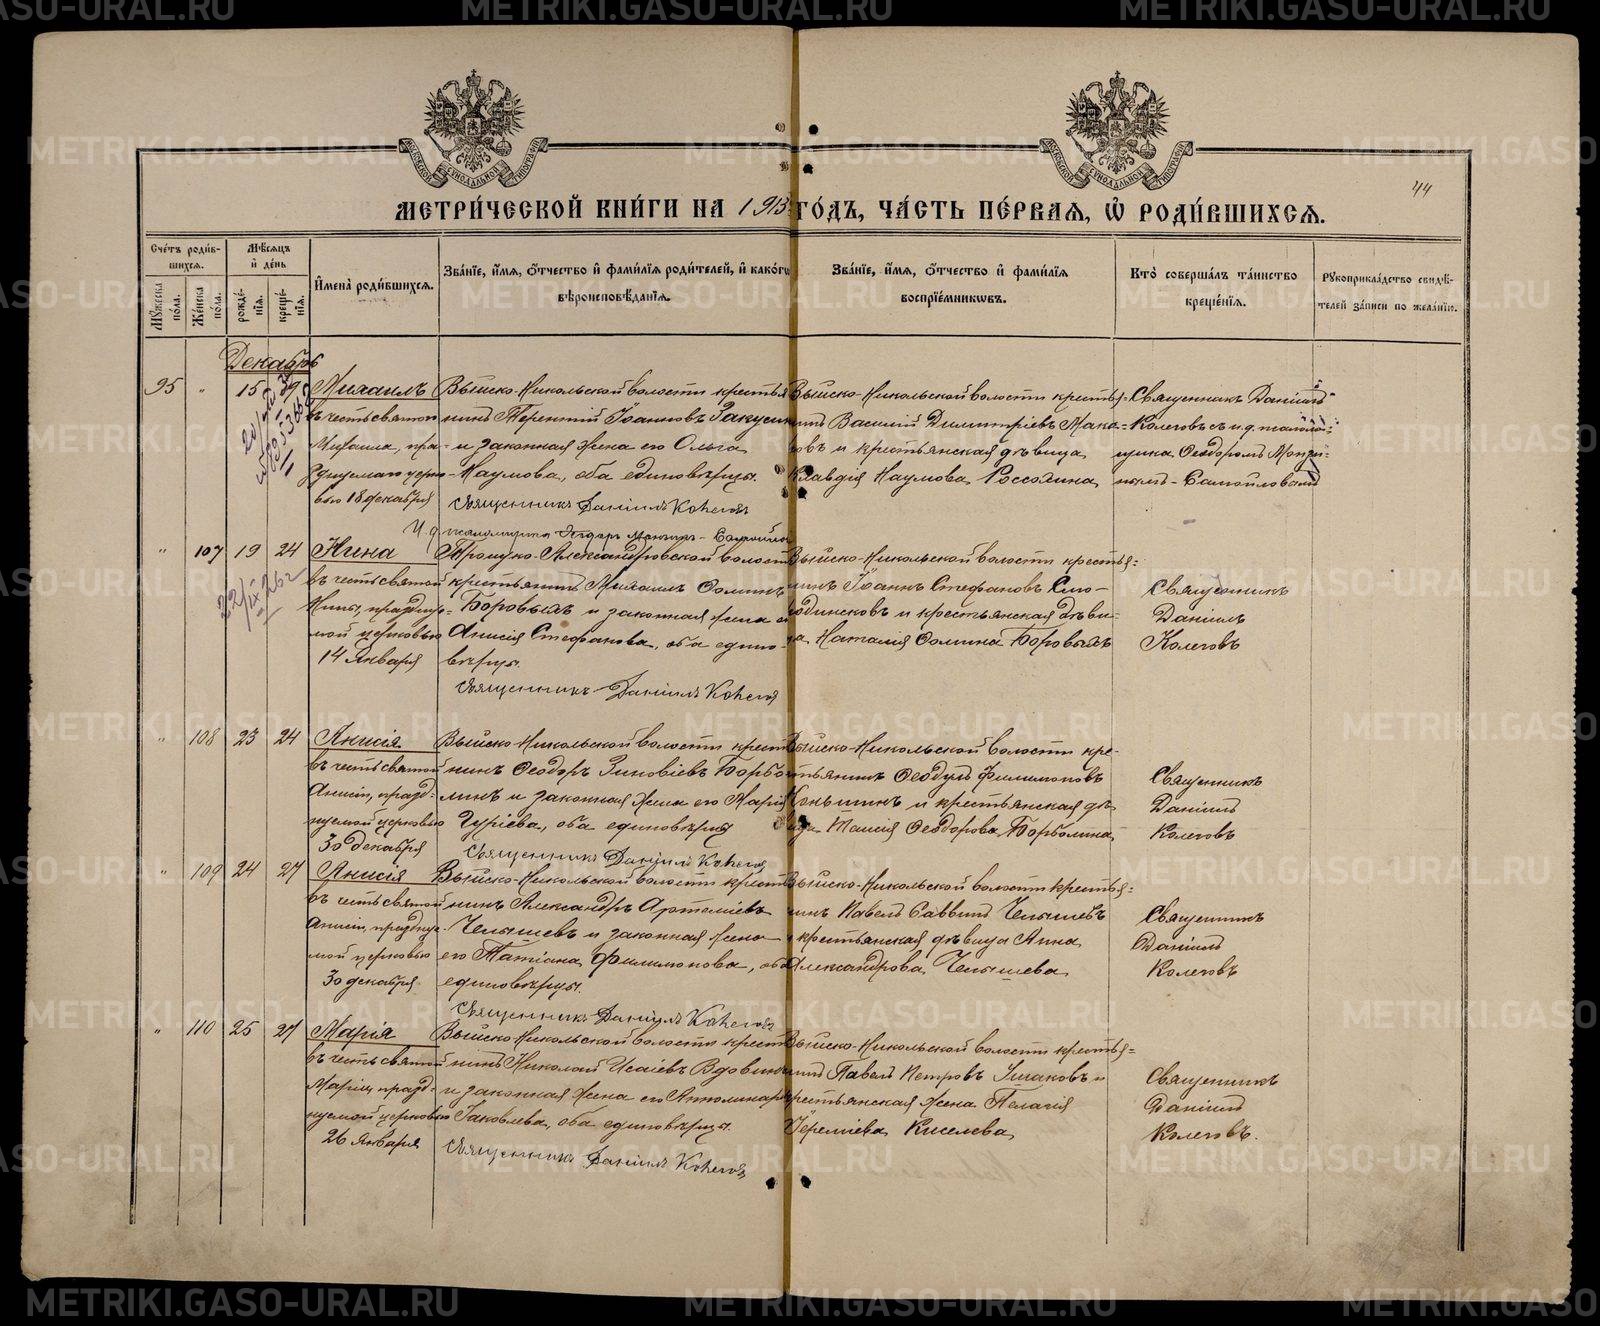 METRIKI.GASO-URAL.RU
44
МЕТРИ́ЧЕСКОЙ КНИ́ГИ НА 1913 ГО́ДЪ, ЧА́СТЬ ПЕ́РВАЯ, Ѡ РОДИ́ВШИХСЯ.
Сче́тъ роди́в-
шихся.
Мѣ́сяцъ
и де́нь
Мꙋжеска по́ла.
Же́нска по́ла.
рожде́нїя.
креще́нїя.
Имена̀ роди́вшихся.
Зва́нїе, и́мя, о́тчество и фами́лїя роди́телей, и како́гѡ
вѣроисповѣ́данїя.
Зва́нїе, и́мя, о́тчество и фами́лїя
воспрїе́мникѡвъ.
Кто̀ соверша́лъ та́инство
креще́нїя.
Рꙋкоприкла́дство свидѣ́-
телей за́писи по жела́нїю.
Декабрь
95 " 15 19 Михаилъ
въ честь святого
Михаила, пра-
зднуемаго церко-
вью 18 декабря
Выйско-Никольской волости крестья-
нинъ Терентій Іоанновъ Закусинъ
и законная жена его Ольга
Наумова, оба единовѣрцы.
Священникъ Даніилъ Колеговъ
Выйско-Никольской волости крестья-
нинъ Василій Димитріевъ Мака-
ровъ и крестьянская дѣвица
Клавдія Наумова Россолина
Священникъ Даніилъ
Колеговъ с и.д. псаломщика Ѳеодоромъ
" 107 19 24 Нина
въ честь святой
Нины, празднуе-
мой церковью
14 Января
Троицко-Александровской волости
крестьянинъ Михаилъ Ѳоминъ
Боровыхъ и законная жена его
Анисія Стефанова, оба едино-
вѣрцы.
Священникъ Даніилъ Колеговъ
Выйско-Никольской волости крестья-
нинъ Іоаннъ Стефановъ Смо-
родинсковъ и крестьянская дѣви-
ца Наталія Ѳомина Боровыхъ
Священникъ
Даніилъ
Колеговъ
" 108 23 24 Анисія
въ честь святой
Анисіи, празд-
нуемой церковью
30 декабря
Выйско-Никольской волости крестья-
нинъ Ѳеодоръ Зиновіевъ Борбо-
линъ и законная жена его Марія
Гуріева, оба единовѣрцы
Священникъ Даніилъ Колеговъ
Выйско-Никольской волости кре-
стьянинъ Ѳеодулъ Филимоновъ
Коньшинъ и крестьянская дѣ-
вица Таисія Ѳеодорова Борболина
Священникъ
Даніилъ
Колеговъ
" 109 24 27 Анисія
въ честь святой
Анисіи, празднуе-
мой церковью
30 декабря
Выйско-Никольской волости крестья-
нинъ Александръ Артеміевъ
Челышевъ и законная жена
его Татіана Филимонова, оба
единовѣрцы.
Священникъ Даніилъ Колеговъ
Выйско-Никольской волости крестья-
нинъ Павелъ Саввинъ Челышевъ
и крестьянская дѣвица Анна
Александрова Челышева
Священникъ
Даніилъ
Колеговъ
" 110 25 27 Марія
въ честь святой
Маріи, празд-
нуемой церковью
26 Января
Выйско-Никольской волости крестья-
нинъ Николай Исаіевъ Вдовинъ
и законная жена его Апполинарія
Іаковлева, оба единовѣрцы.
Священникъ Даніилъ Колеговъ
Выйско-Никольской волости крестья-
нинъ Павелъ Петровъ Ушаковъ и
крестьянская жена Пелагія
Іереміева Киселева
Священникъ
Даніилъ
Колеговъ.